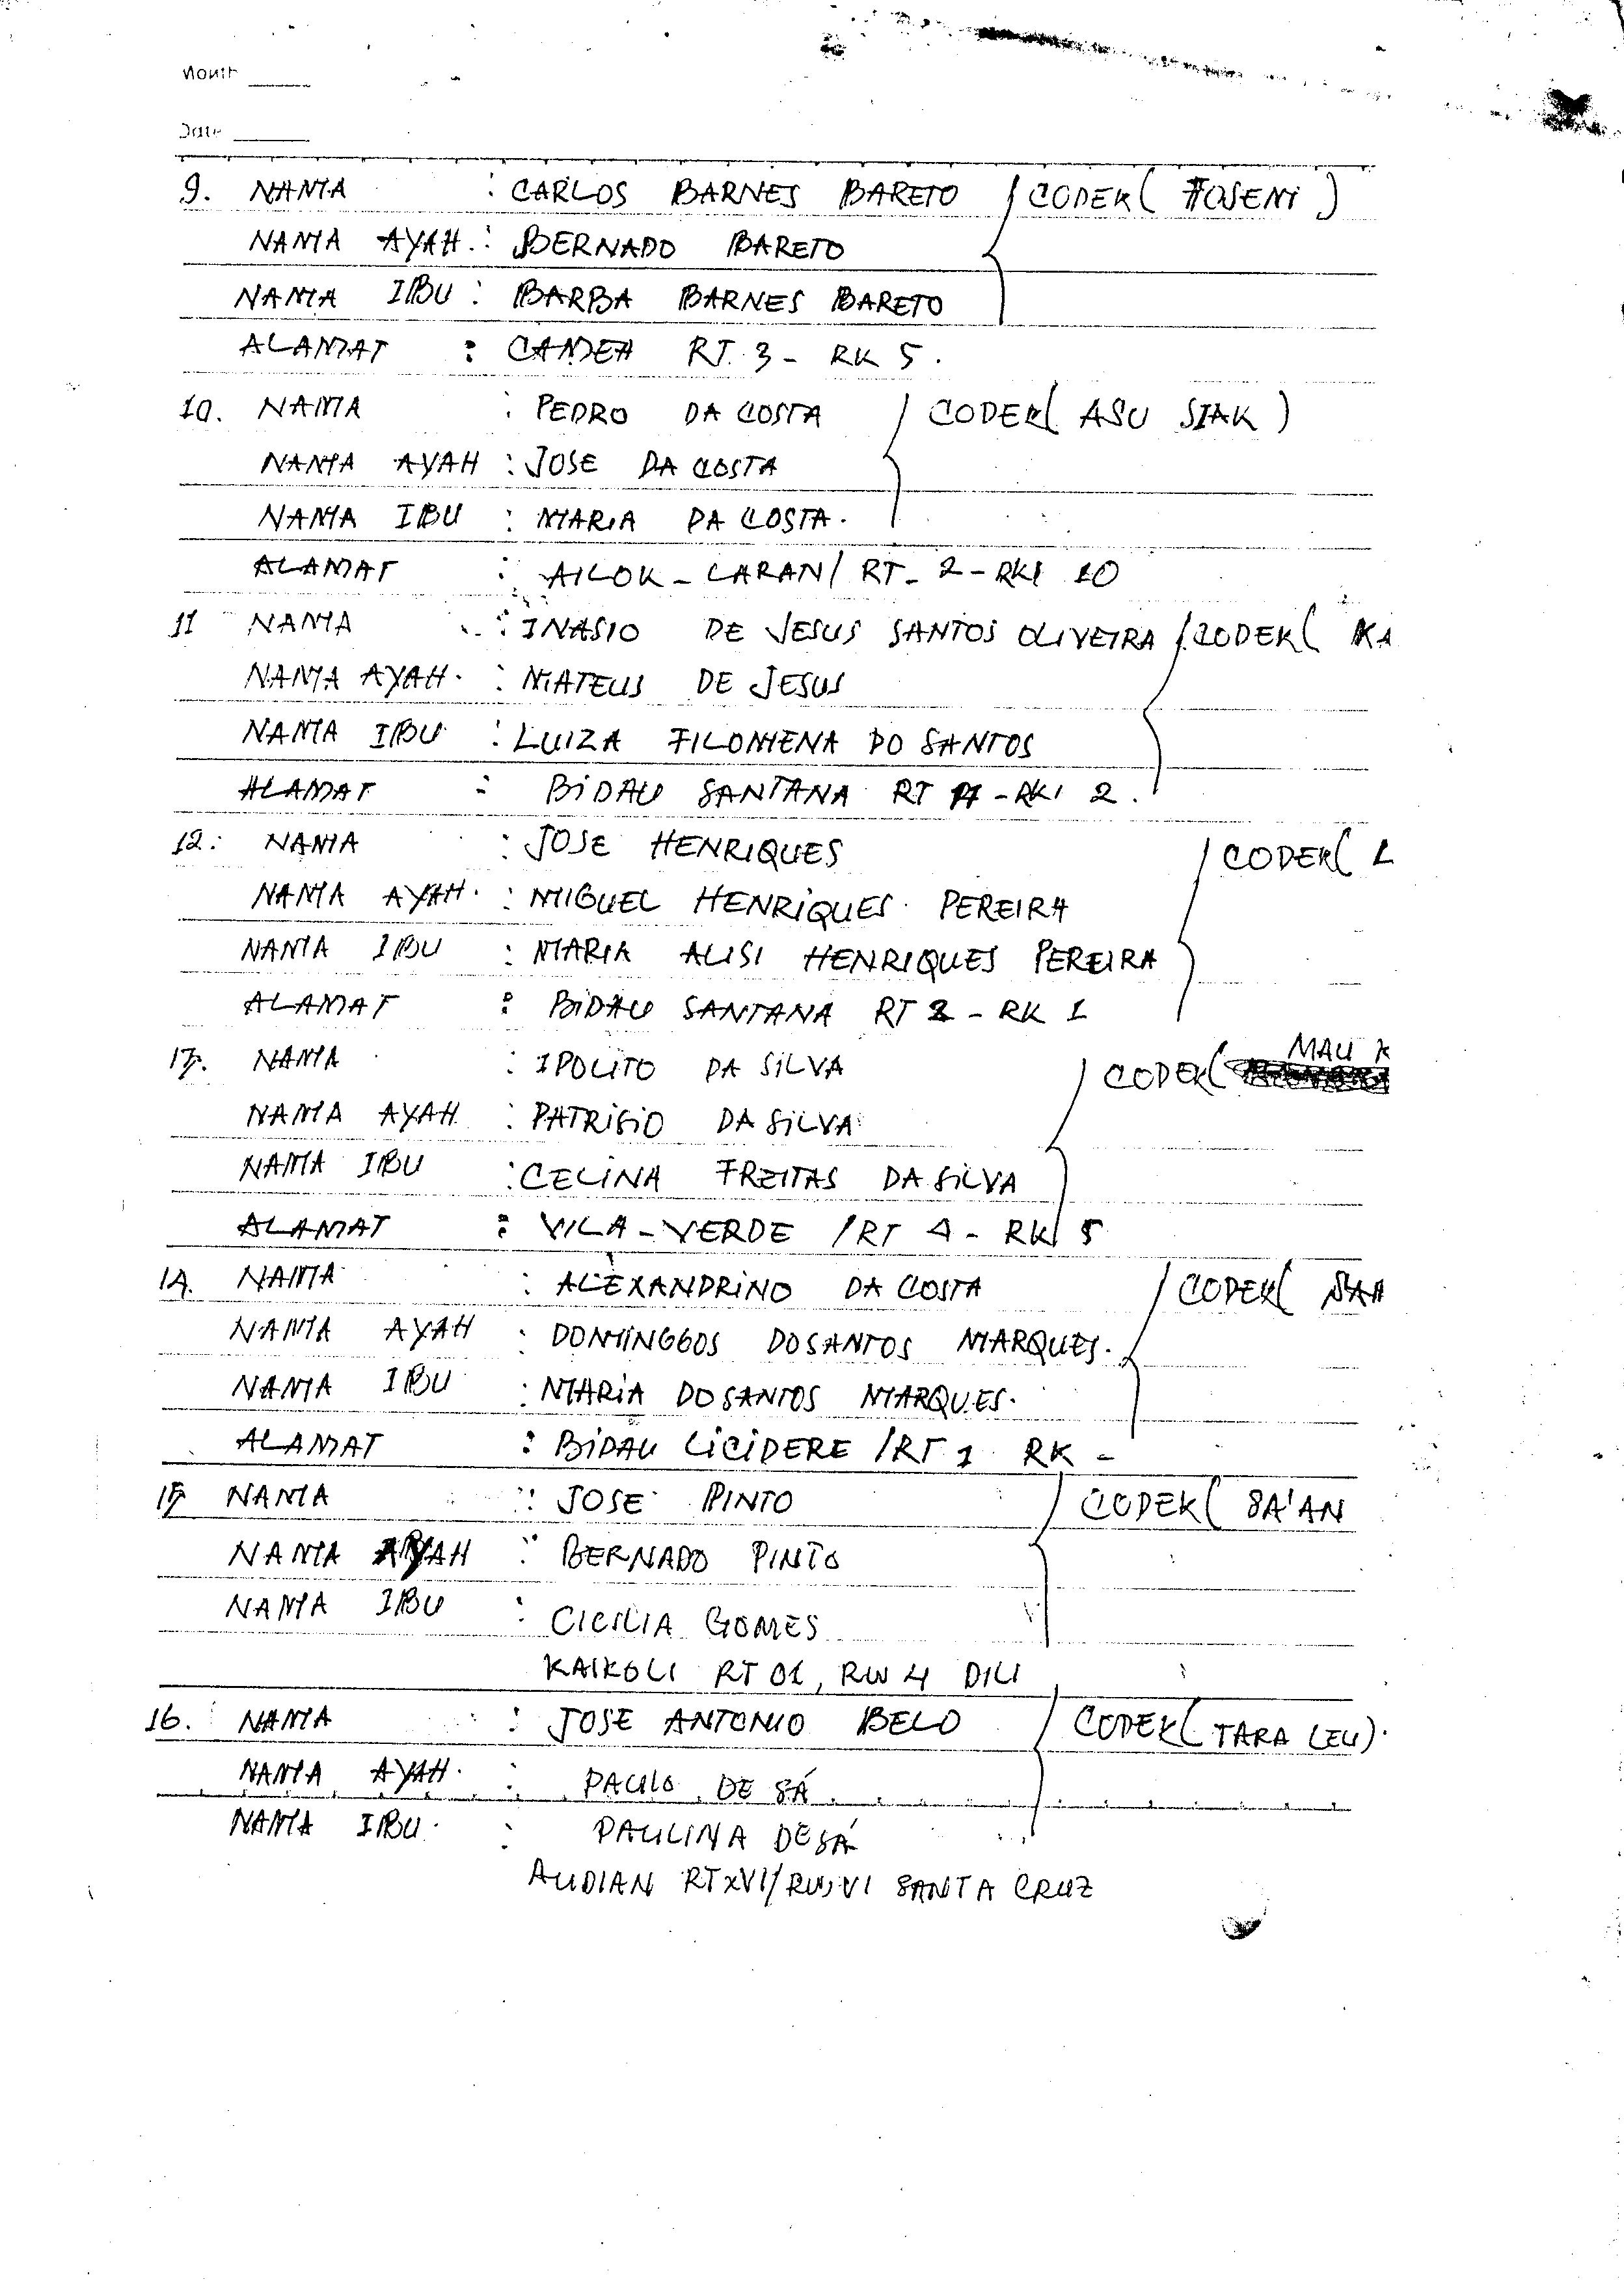 Month
Date
9. NAMA : CARLOS BARNES BARETO / CODEK( FOSENI )
NAMA AYAH. : BERNADO BARETO
NAMA IBU : BARBA BARNES BARETO
ALAMAT : CAMEA RT. 3 - RK 5.
10. NAMA : PEDRO DA COSTA / CODEK( ASU SIAK )
NAMA AYAH : JOSE DA COSTA
NAMA IBU : MARIA DA COSTA.
ALAMAT : AILOK - LARAN / RT - 2 - RK 10
11 NAMA : INASIO DE JESUS SANTOS OLIVEIRA / CODEK( KA
NAMA AYAH. : MATEUS DE JESUS
NAMA IBU : LUIZA FILOMENA DO SANTOS
ALAMAT : BIDAU SANTANA RT - RK 2.
12. NAMA : JOSE HENRIQUES / CODEK( L
NAMA AYAH. : MIGUEL HENRIQUES PEREIRA
NAMA IBU : MARIA ALISI HENRIQUES PEREIRA
ALAMAT : BIDAU SANTANA RT 2 - RK 1
13. NAMA : IPOLITO DA SILVA / CODEK( MAU K
NAMA AYAH : PATRISIO DA SILVA
NAMA IBU : CELINA FREITAS DA SILVA
ALAMAT : VILA - VERDE / RT 4 - RK 5
14. NAMA : ALEXANDRINO DA COSTA / CODEK(
NAMA AYAH : DOMINGGOS DOSANTOS MARQUES.
NAMA IBU : MARIA DOSANTOS MARQUES.
ALAMAT : BIDAU LICIDERE / RT 1 RK -
15 NAMA : JOSE PINTO / CODEK( SA'AN
NAMA AYAH : BERNADO PINTO
NAMA IBU : CICILIA GOMES
KAIKOLI RT 01, RW 4 DILI
16. NAMA : JOSE ANTONIO BELO / CODEK( TARA LEU).
NAMA AYAH. : PAULO DE SÁ
NAMA IBU. : PAULINA DE SÁ
AUDIAN RT XVI / RW VI SANTA CRUZ